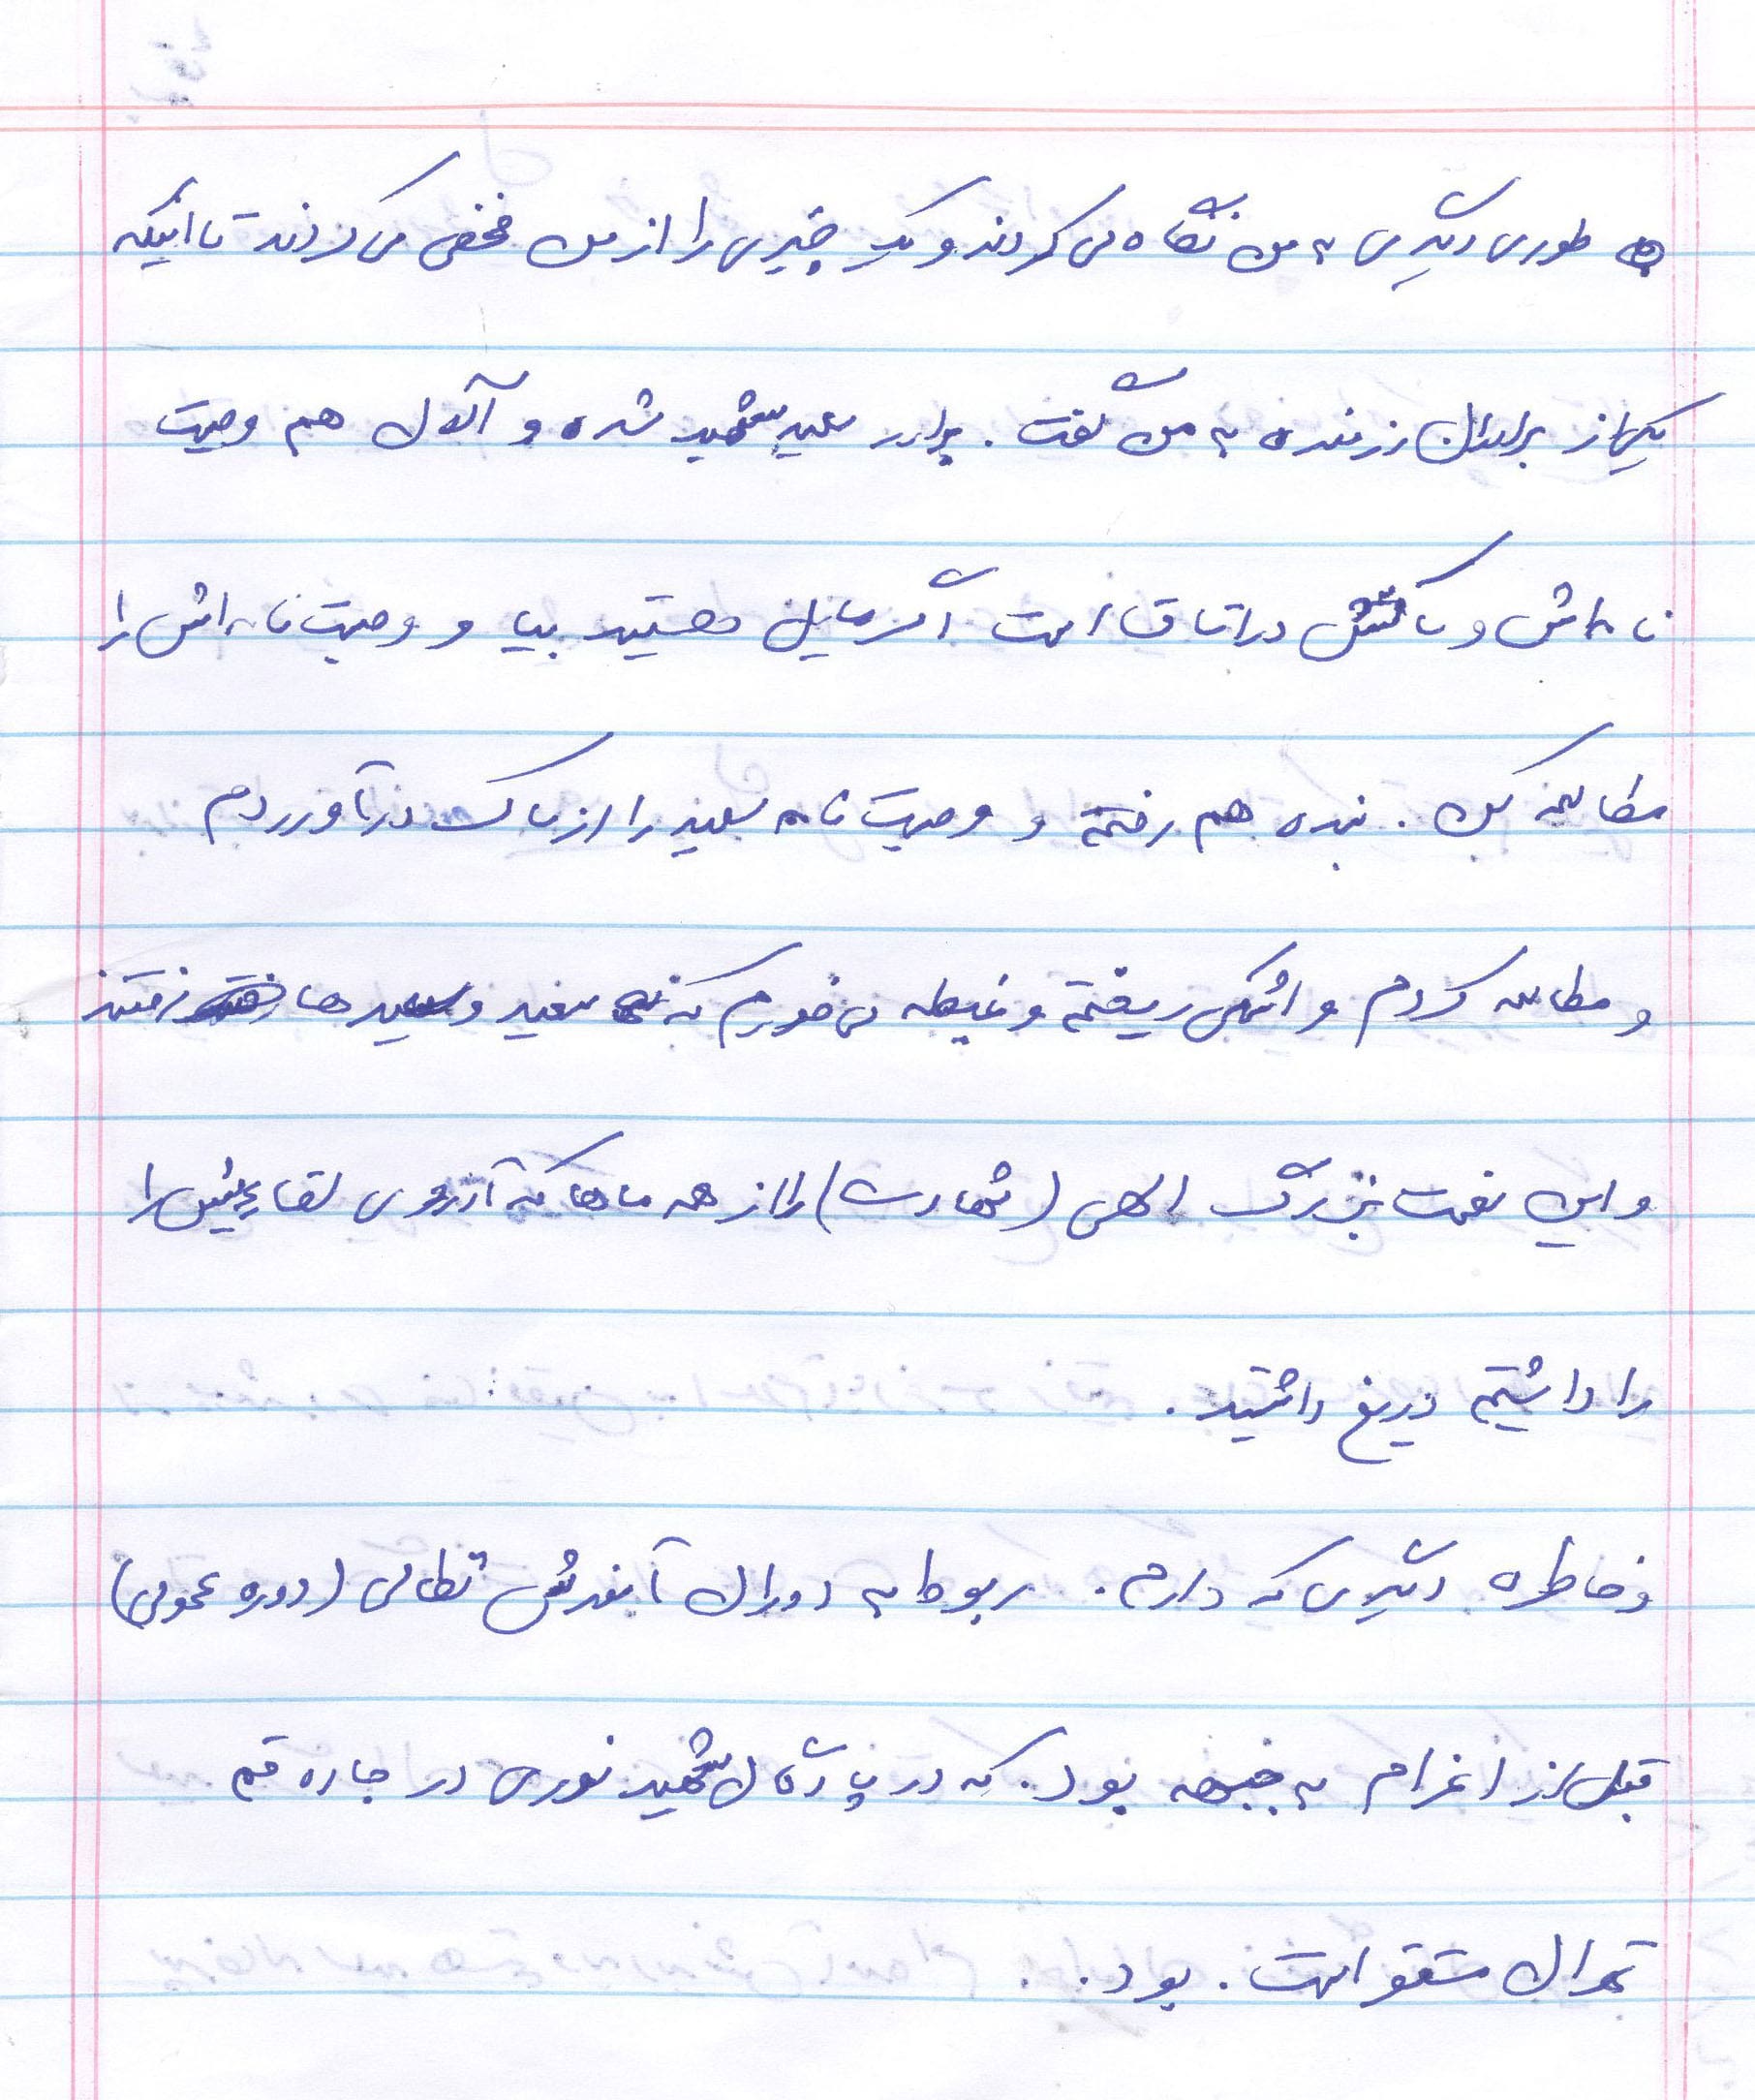 طوری دیگری به من نگاه می کردند و یک چیزی را از من مخفی می کردند تا اینکه
یکی از برادران رزمنده به من گفت. برادر سعید شهید شده و الان هم وصیت
نامه اش و ساکش در اتاق است اگر مایل هستید بیا و وصیت نامه اش را
مطالعه کن. بنده هم رفته و وصیت نامه سعید را از ساک درآوردم
و مطالعه کردم و اشکی ریخته و غبطه می خورم که سعید و سعیدها رفتند
و این نعمت بزرگ الهی (شهادت) را از همه ماها که آرزوی لقا را
را داشتیم دریغ داشتید.
و خاطره دیگری که دارم. مربوط به دوران آموزش نظامی (دوره عمومی)
قبل از اعزام به جبهه بود. که در پادگان شهید نوری در جاده قم
تهران مستقر است. بود.